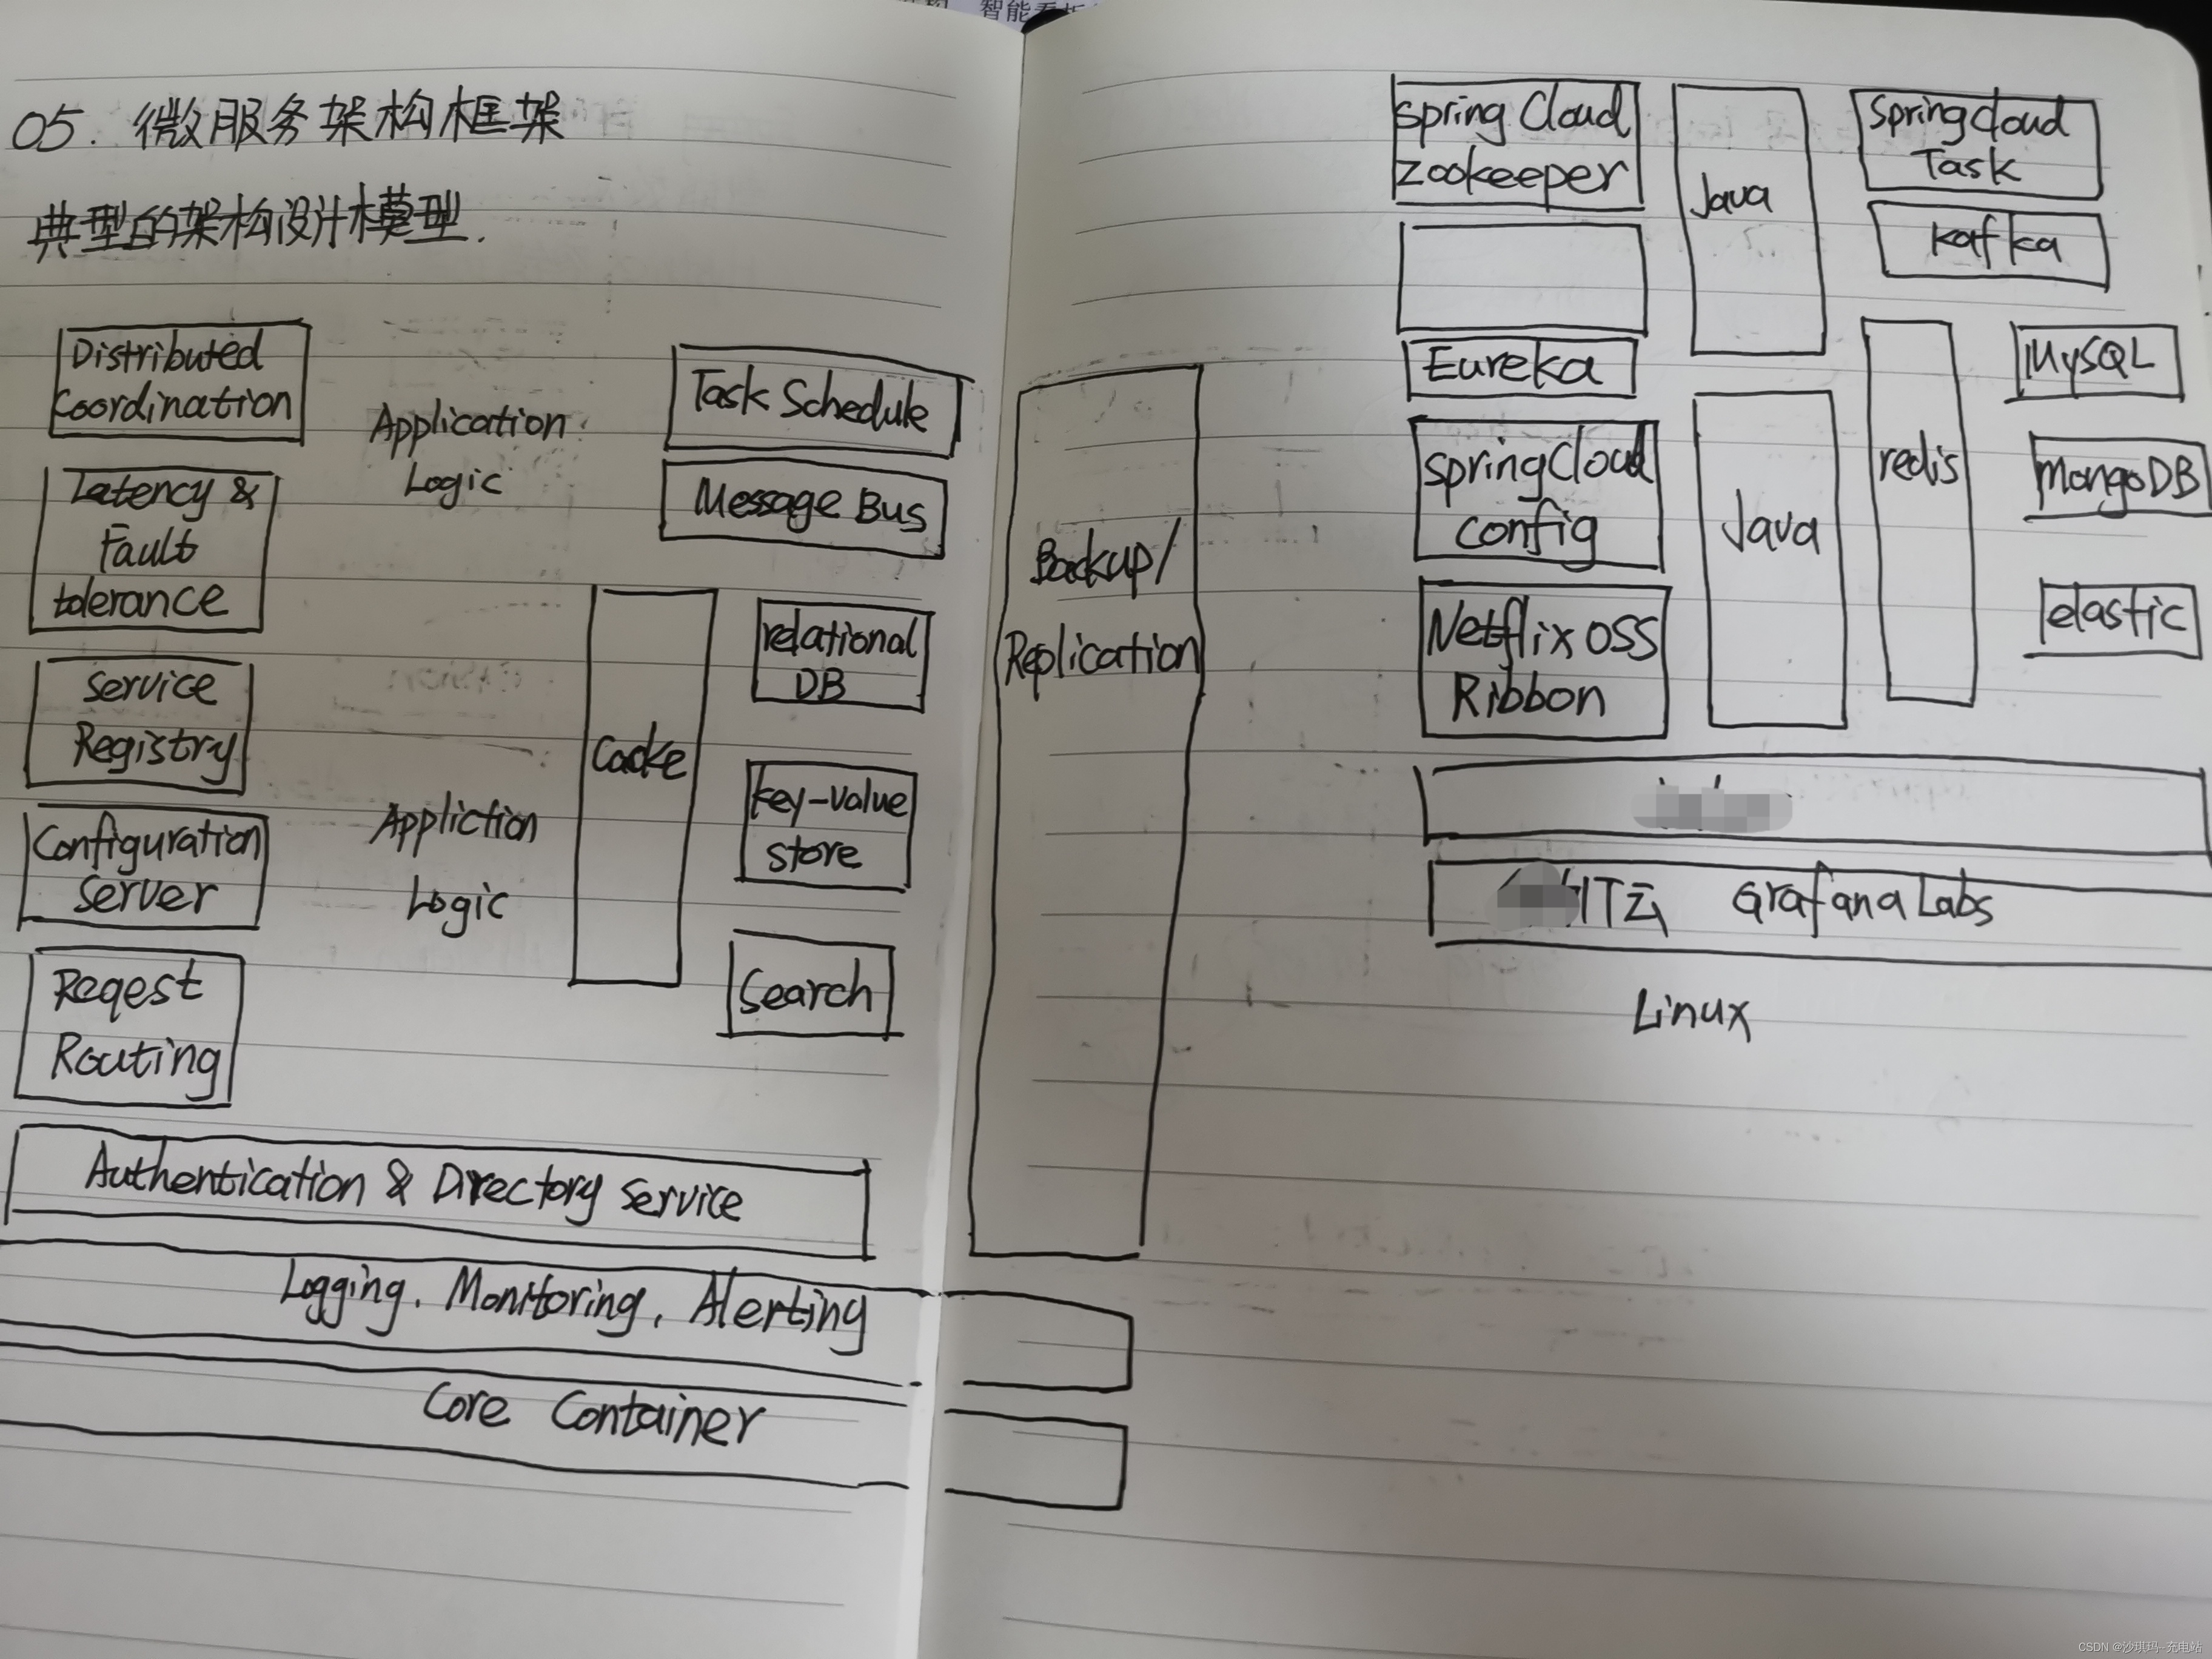 智能看板
05. 微服务架构框架
典型的架构设计模型.
Distributed
Coordination
Application
Logic
Task Schedule
Message Bus
Latency &
Fault
tolerance
Service
Registry
Configuration
Server
Reqest
Routing
Appliction
Logic
Cacke
relational
DB
key-value
store
Search
Backup/
Replication
Authentication & Directory Service
Logging, Monitoring, Alerting
Core Container
Spring Cloud
Zookeeper
Java
Spring Cloud
Task
kafka
Eureka
Spring Cloud
config
Netflix OSS
Ribbon
Java
redis
MySQL
MongoDB
elastic
IT云 Grafana Labs
Linux
CSDN @沙琪玛--充电站